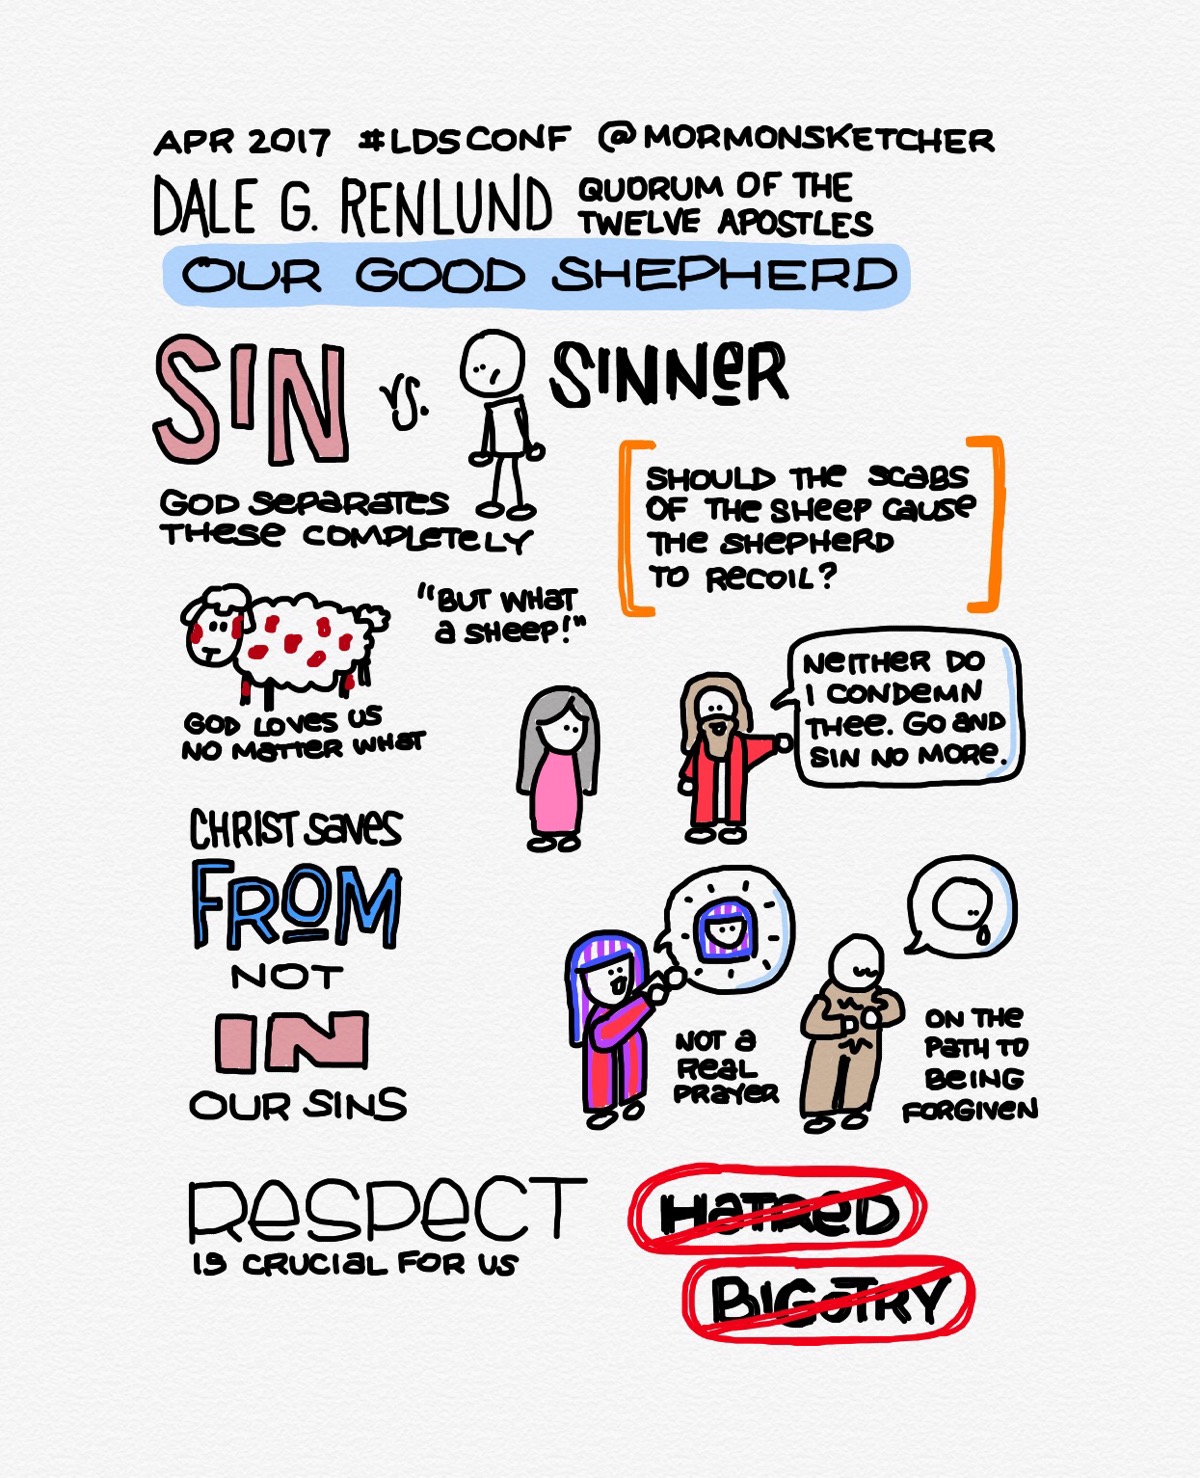 APR 2017 #LDSCONF @MORMONSKETCHER
DALE G. RENLUND
QUORUM OF THE
TWELVE APOSTLES
OUR GOOD SHEPHERD
SIN vs. SINNeR
GOD SePARATES
THeSe COMPLeTeLY
SHOULD THe SCaBS
OF THe SHeeP CaUSe
THe SHePHeRD
TO ReCOIL?
"BUT WHaT
a SHeeP!"
GOD LOVeS US
NO MaTTeR WHaT
NeITHeR DO
I CONDeMN
THee. GO aND
SIN NO MORe.
CHRIST SaVeS
FROM
NOT
IN
OUR SINS
NOT a
ReaL
PRaYeR
ON THe
PaTH TO
BeING
FORGIVeN
ReSPeCT
IS CRUCIaL FOR US
HaTReD
BIGOTRY